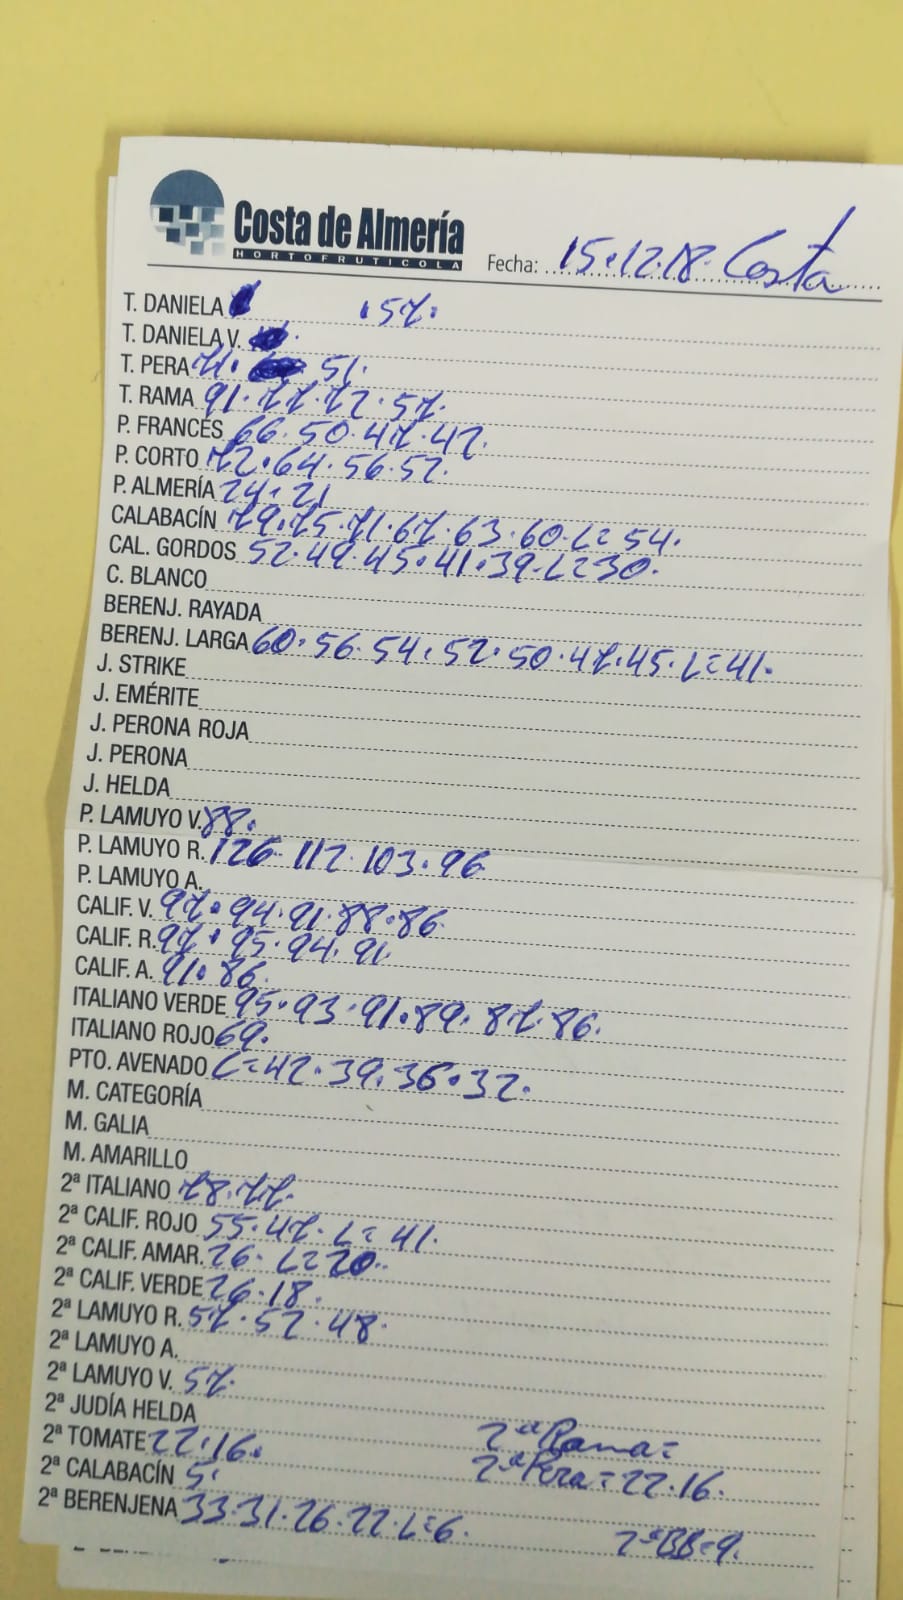 Costa de Almería
HORTOFRUTICOLA
Fecha: 15.12.18. Costa
T. DANIELA .57.
T. DANIELA V.
T. PERA 71. 51.
T. RAMA 91.77.72.57.
P. FRANCÉS 66.50.47.42.
P. CORTO 72.64.56.52.
P. ALMERÍA 24.21
CALABACÍN 79.75.71.67.63.60.L=54.
CAL. GORDOS 52.49.45.41.39.L=30.
C. BLANCO
BERENJ. RAYADA
BERENJ. LARGA 60.56.54.52.50.47.45.L=41.
J. STRIKE
J. EMÉRITE
J. PERONA ROJA
J. PERONA
J. HELDA
P. LAMUYO V. 88.
P. LAMUYO R. 126.112.103.96
P. LAMUYO A.
CALIF. V. 97.94.91.88.86.
CALIF. R. 97.95.94.91.
CALIF. A. 91.86.
ITALIANO VERDE 95.93.91.89.87.86.
ITALIANO ROJO 69.
PTO. AVENADO L=42.39.36.32.
M. CATEGORÍA
M. GALIA
M. AMARILLO
2ª ITALIANO 78.77.
2ª CALIF. ROJO 55.47.L=41.
2ª CALIF. AMAR. 26.L=20.
2ª CALIF. VERDE 26.18.
2ª LAMUYO R. 57.52.48.
2ª LAMUYO A.
2ª LAMUYO V. 57.
2ª JUDÍA HELDA
2ª TOMATE 22.16. 2ª Rama=
2ª CALABACÍN 5. 2ª Pera=22.16.
2ª BERENJENA 33.31.26.22.L=6. 2ªBB=9.